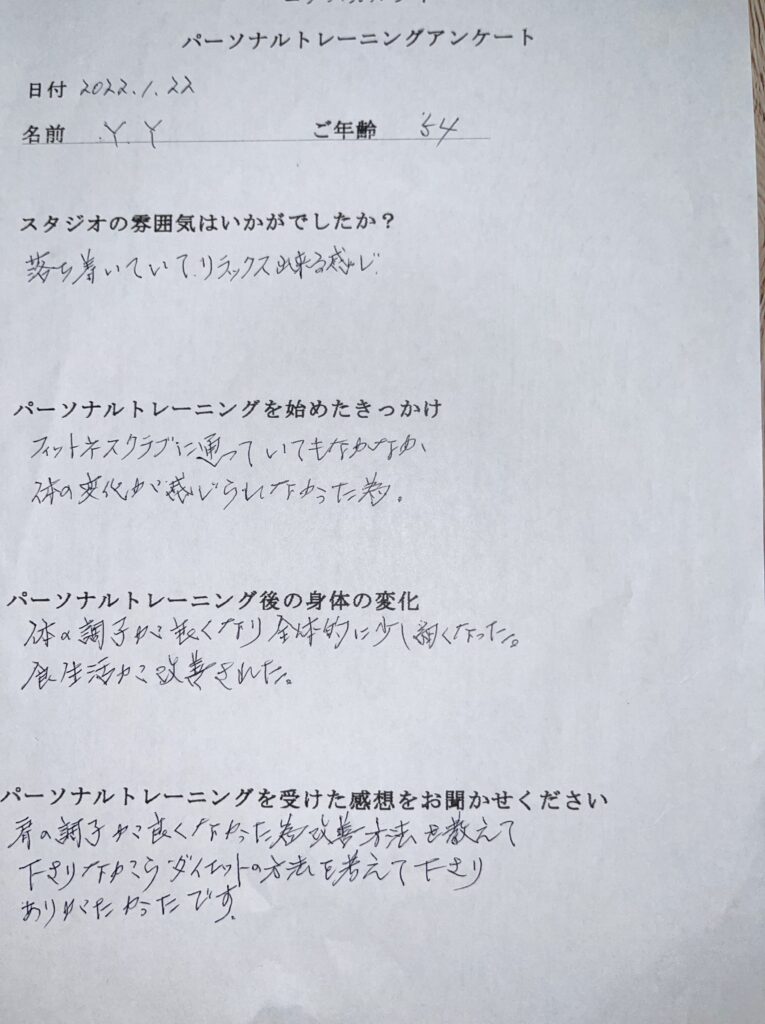 パーソナルトレーニングアンケート
日付 2022.1.22
名前 Y.Y ご年齢 54
スタジオの雰囲気はいかがでしたか?
落ち着いていて.リラックス出来る感じ
パーソナルトレーニングを始めたきっかけ
フィットネスクラブに通っていてもなかなか、
体の変化が感じられなかった為。
パーソナルトレーニング後の身体の変化
体の調子が良くなり全体的に少し細くなった。
食生活が改善された。
パーソナルトレーニングを受けた感想をお聞かせください
肩の調子が良くなかった為改善方法を教えて
下さりながらダイエットの方法を考えて下さり
ありがたかったです.